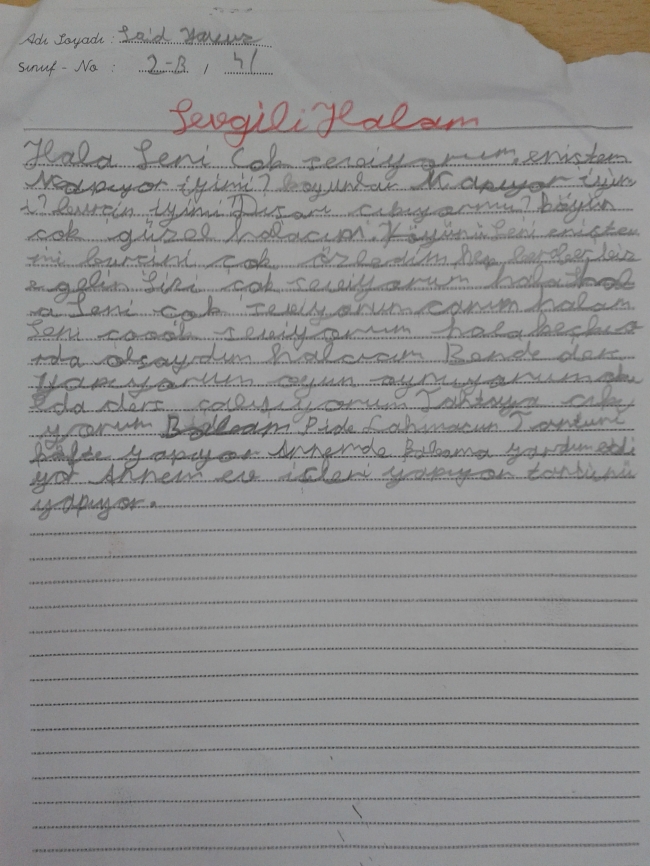 Adı Soyadı: Said
Sınıf - No : 2-B, 41
Sevgili Halam
Hala Seni Çok seviyorum. eniştem
Napıyor iyimi? koyunlar Napıyor iyim
i? burcin iyimi? Dışarı çıkıyormu? köyün
cok güzel halacım. Köyünü Seni enişte
mi burcini çok özledim hep bize
gelin Sizi cok seviyorum hala hal
a Seni çok seviyorum canım halam
Seni coook seviyorum hala
da olsaydım halacım Bende ders
Yapıyorum oyun oynuyorum
da ders çalışıyorum Tahtaya cıkı
yorum Babam Pide Lahmacun Tantuni
köfte yapıyor Annemde Babama yardım edi
yor Annem ev işleri yapıyor
yapıyor.